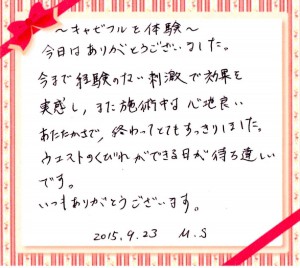 〜キャビフルを体験〜
今日はありがとうございました。
今まで経験のない刺激で効果を
実感し、また施術中は心地良い
あたたかさで、終わってとてもすっきりしました。
ウエストのくびれができる日が待ち遠しい
です。
いつもありがとうございます。
2015.9.23 M.S